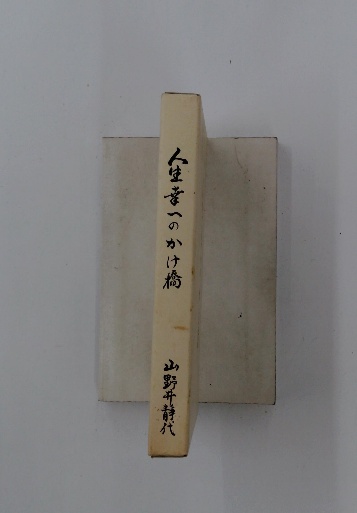 人生幸へのかけ橋
山野井静代